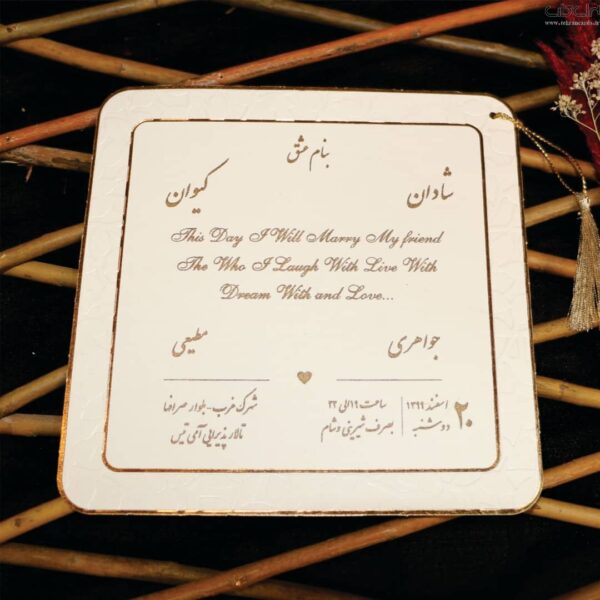 www.rekrancards.ir
بنام عشق
شادان کیوان
This Day I Will Marry My friend
The Who I Laugh With Live With
Dream With and Love...
جواهری مطیعی
۲۰ اسفند ۱۳۹۹ دوشنبه
ساعت ۱۹ الی ۲۲
بصرف شیرینی و شام
شهرک غرب - بلوار صرافها
تالار پذیرایی آمی تیس